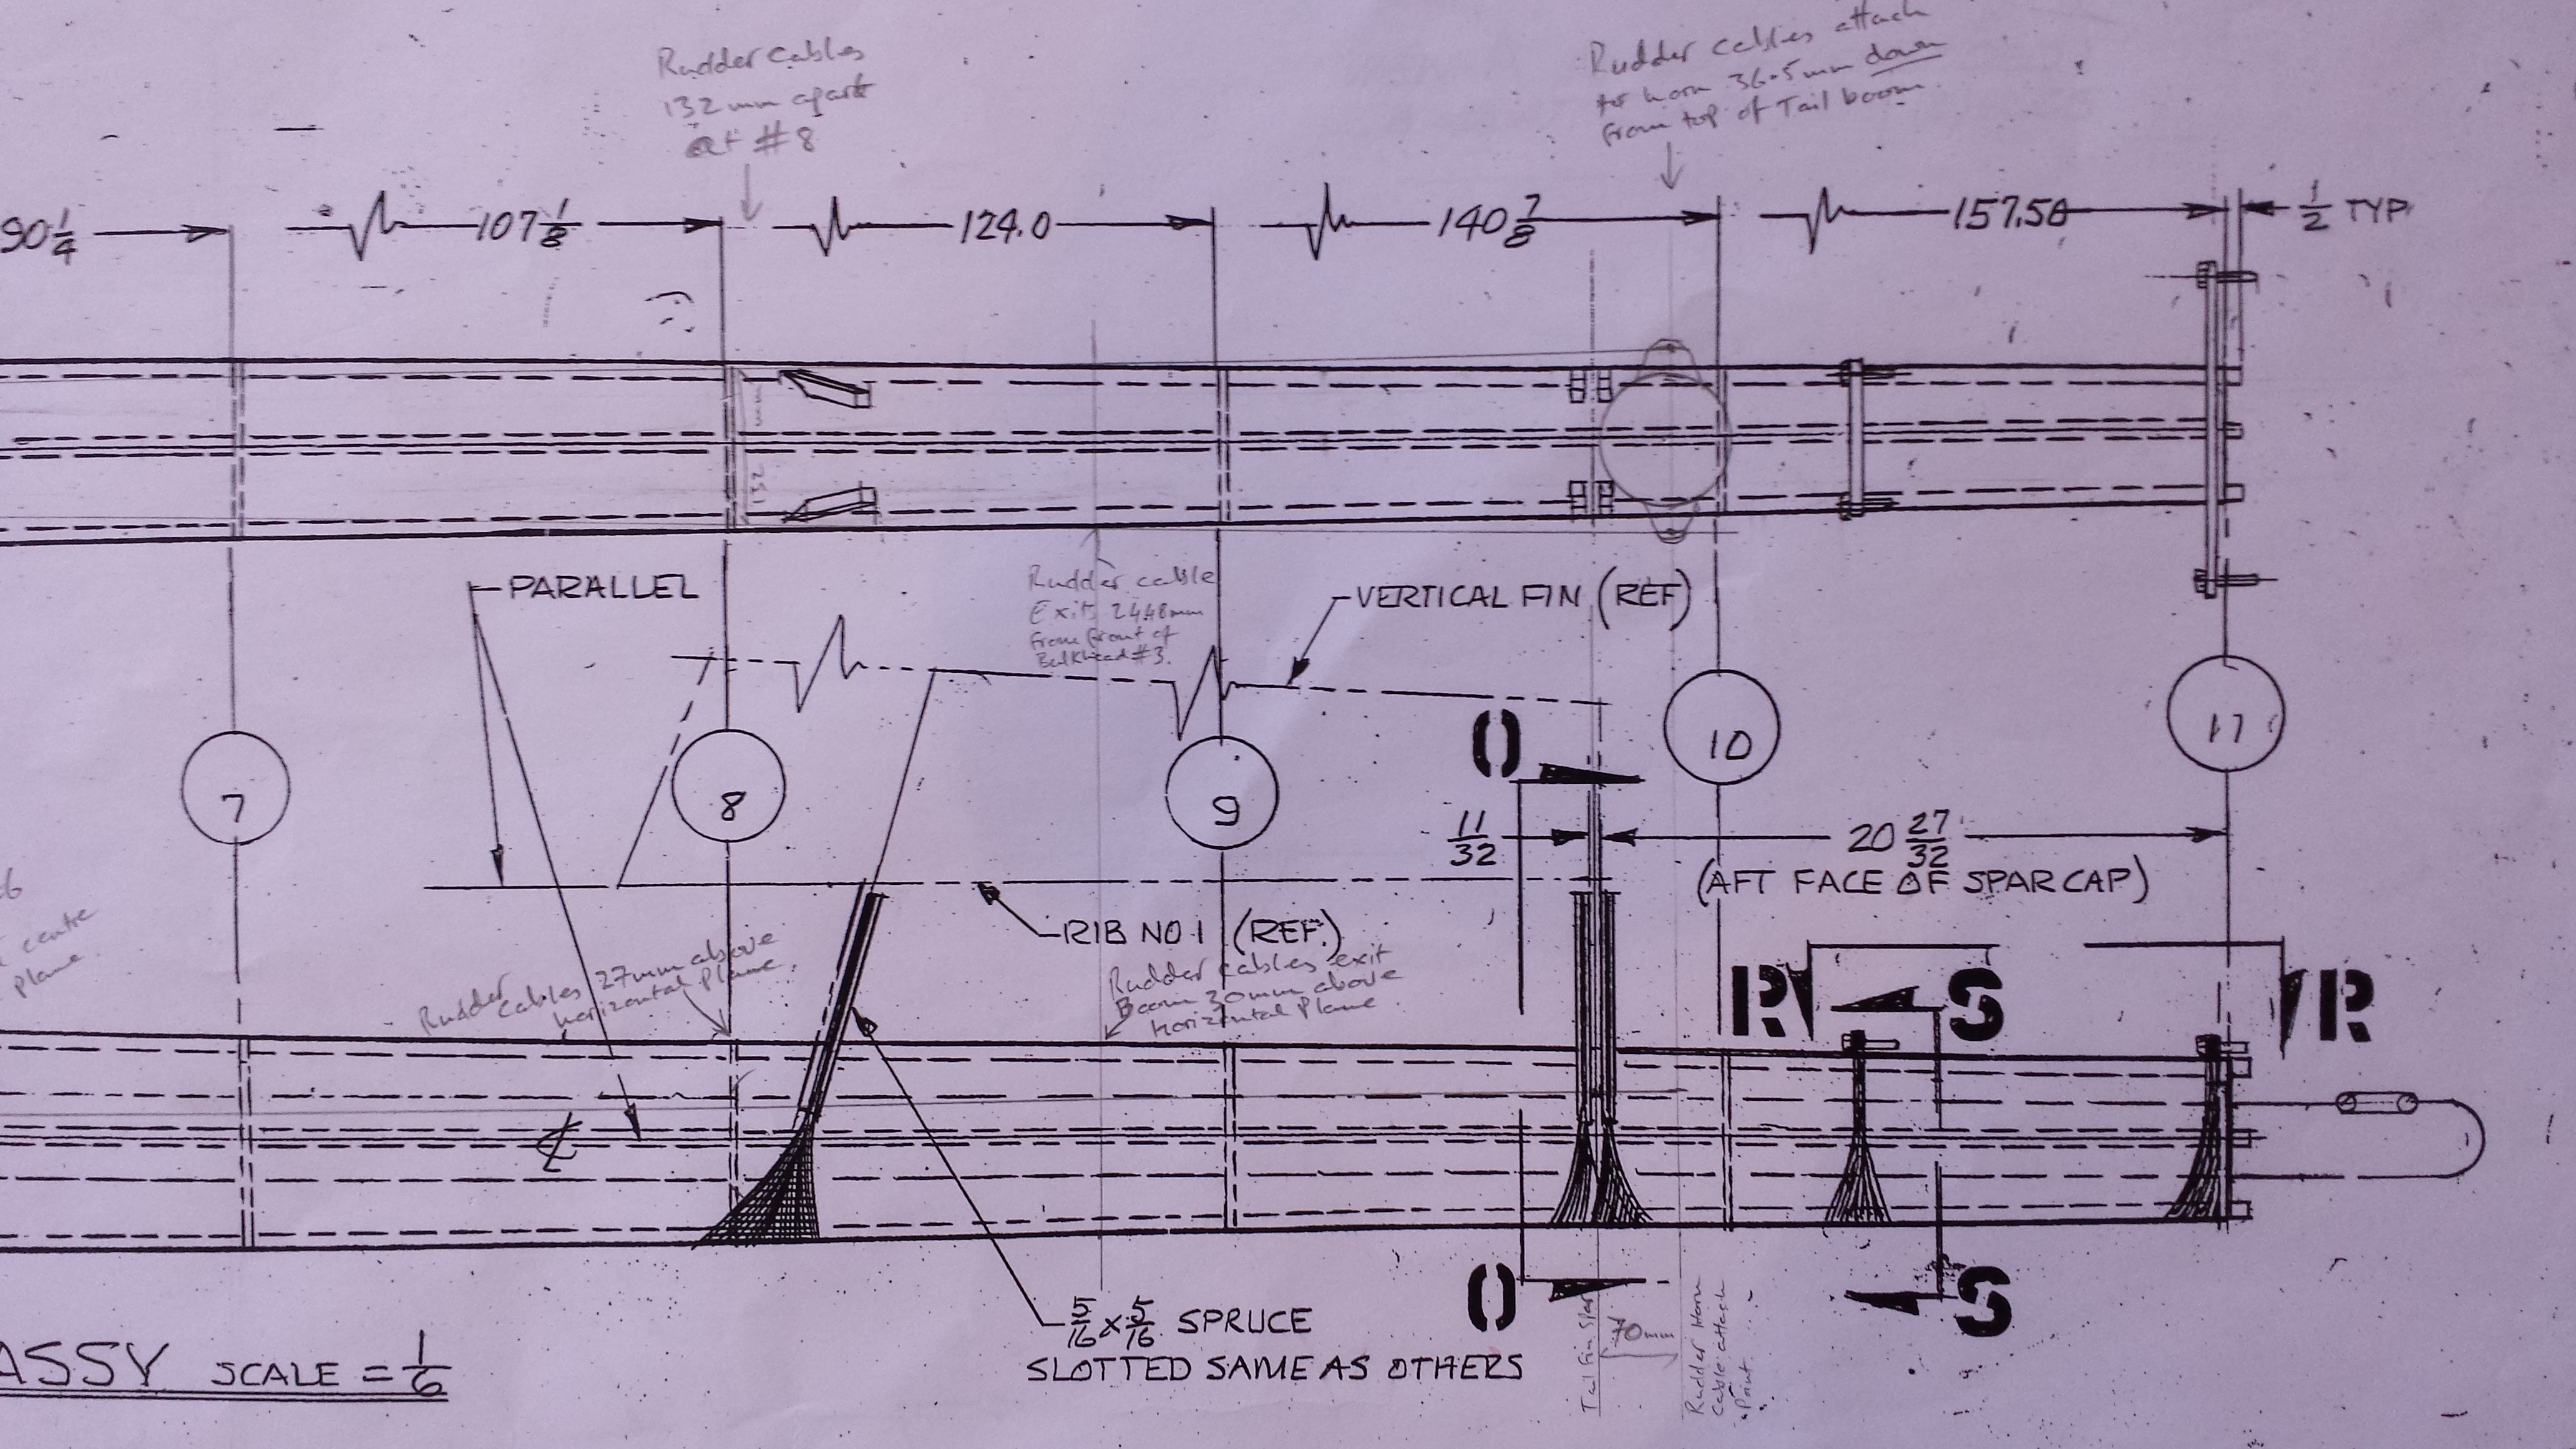 Rudder cables
132mm apart
at #8
Rudder cables attach
to horn 36.5mm down
from top of Tail boom.
90 1/4
107 1/8
124.0
140 7/8
157.50
1/2 TYP
132 mm
PARALLEL
Rudder cable
Exits 2448mm
from front of
Bulkhead #3.
VERTICAL FIN (REF)
7
8
9
10
11
O
11/32
20 27/32
(AFT FACE OF SPAR CAP)
RIB NO 1 (REF.)
centre
plane.
Rudder cables 27mm above
horizontal plane.
Rudder cables exit
Boom 30mm above
horizontal plane.
R
S
R
℄
O
S
5/16 x 5/16 SPRUCE
SLOTTED SAME AS OTHERS
Tail Fin Spar
70mm
Rudder Horn
Cable attach
Point.
ASSY SCALE = 1/6